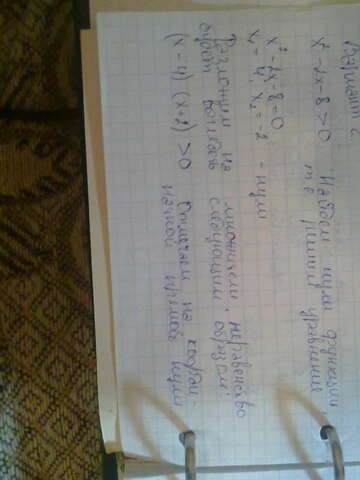 Вариант 2.
x² - 2x - 8 > 0 Найдем нули функции
т.е. решим уравнение
x² - 2x - 8 = 0
x₁ = 4; x₂ = -2 - нули
Разложим на множители, неравенство
будет выглядеть следующим образом:
(x - 4) (x + 2) > 0 Отмечаем на коорди-
натной прямой нули